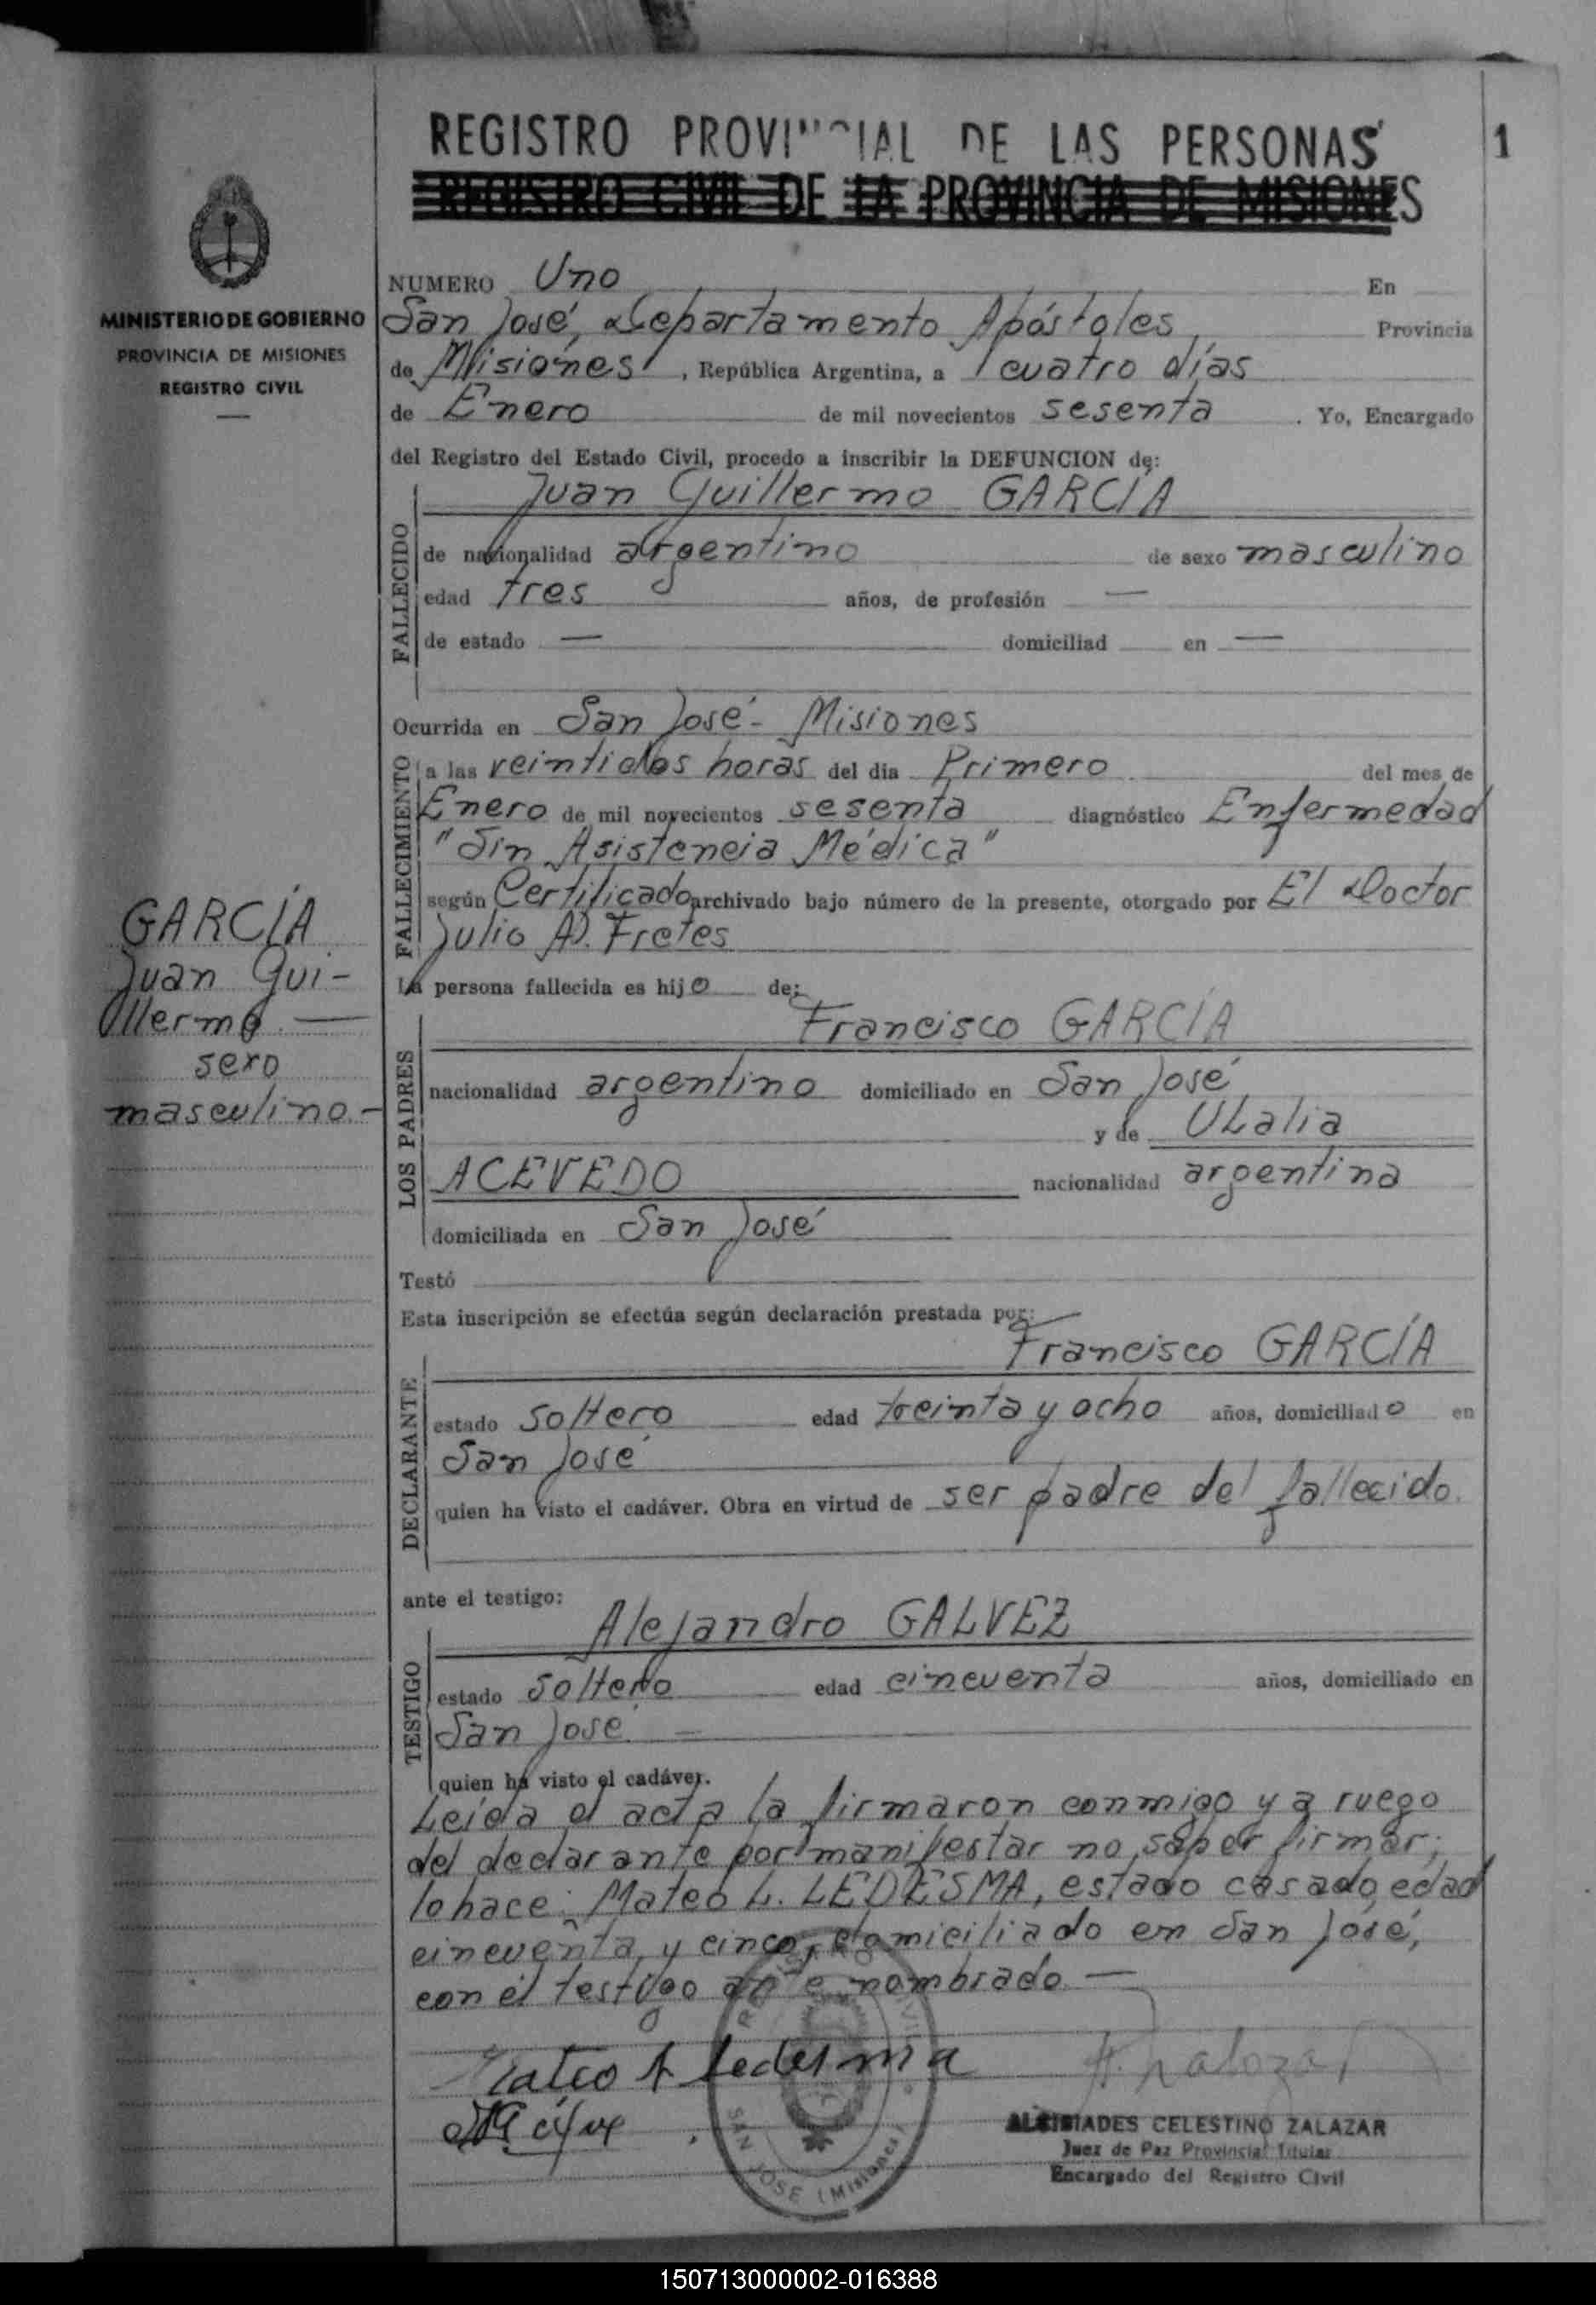 REGISTRO PROVINCIAL DE LAS PERSONAS
1
REGISTRO CIVIL DE LA PROVINCIA DE MISIONES
MINISTERIO DE GOBIERNO
PROVINCIA DE MISIONES
REGISTRO CIVIL
NUMERO Uno En
San José, Departamento Apóstoles, Provincia
de Misiones, República Argentina, a cuatro días
de Enero de mil novecientos sesenta. Yo, Encargado
del Registro del Estado Civil, procedo a inscribir la DEFUNCION de:
Juan Guillermo GARCÍA
FALLECIDO
de nacionalidad argentino de sexo masculino
edad tres años, de profesión —
de estado — domiciliad en —
Ocurrida en San José - Misiones
FALLECIMIENTO
a las veintidos horas del día Primero del mes de
Enero de mil novecientos sesenta diagnóstico Enfermedad
"Sin Asistencia Médica"
según Certificado archivado bajo número de la presente, otorgado por El Doctor
Julio A. Fretes
GARCÍA
Juan Gui-
llermo —
sexo
masculino.-
La persona fallecida es hijo de:
Francisco GARCÍA
LOS PADRES
nacionalidad argentino domiciliado en San José
y de ULalia
ACEVEDO nacionalidad argentina
domiciliada en San José
Testó
Esta inscripción se efectúa según declaración prestada por:
Francisco GARCÍA
DECLARANTE
estado soltero edad treinta y ocho años, domiciliado en
San José
quien ha visto el cadáver. Obra en virtud de ser padre del fallecido.
ante el testigo:
Alejandro GALVEZ
TESTIGO
estado soltero edad cincuenta años, domiciliado en
San José —
quien ha visto el cadáver.
Leída el acta la firmaron conmigo y a ruego
del declarante por manifestar no saber firmar;
lo hace: Mateo L. LEDESMA, estado casado, edad
cincuenta y cinco, domiciliado en San José,
con el testigo ante nombrado —
Mateo L Ledesma
SAN JOSE (Misiones)
ALCIBIADES CELESTINO ZALAZAR
Juez de Paz Provincial Titular
Encargado del Registro Civil
150713000002-016388